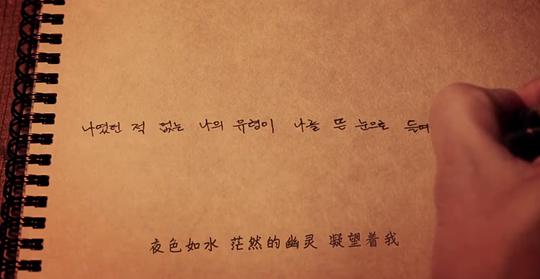 나였던 적 없는 나의 유령이 나를 뜬 눈으로 들여
夜色如水 茫然的幽灵 凝望着我